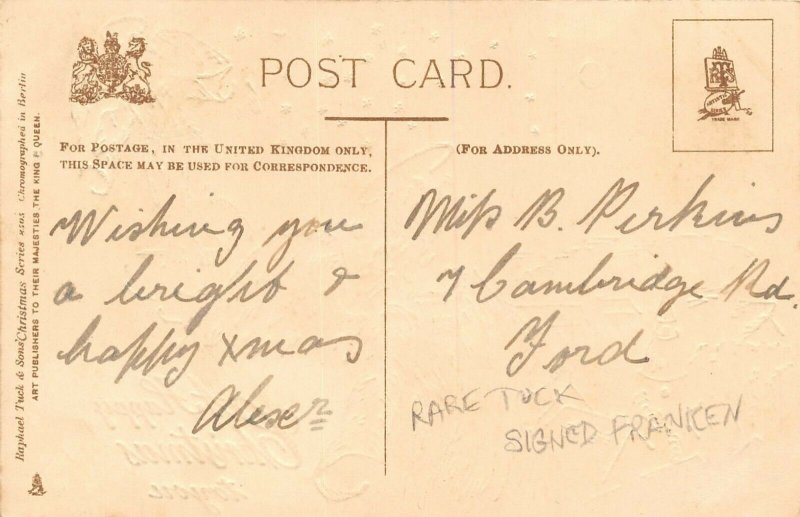 POST CARD.
FOR POSTAGE, IN THE UNITED KINGDOM ONLY,
THIS SPACE MAY BE USED FOR CORRESPONDENCE.
(FOR ADDRESS ONLY).
Wishing you
a bright &
happy xmas
Miss B. Perkins
7 Cambridge Rd.
Ford
RARE TUCK
SIGNED FRANKEN
Raphael Tuck & Sons' Christmas Series Chromographed in Berlin
ART PUBLISHERS TO THEIR MAJESTIES THE KING & QUEEN.
ARTISTIC
SERIES
TRADE MARK